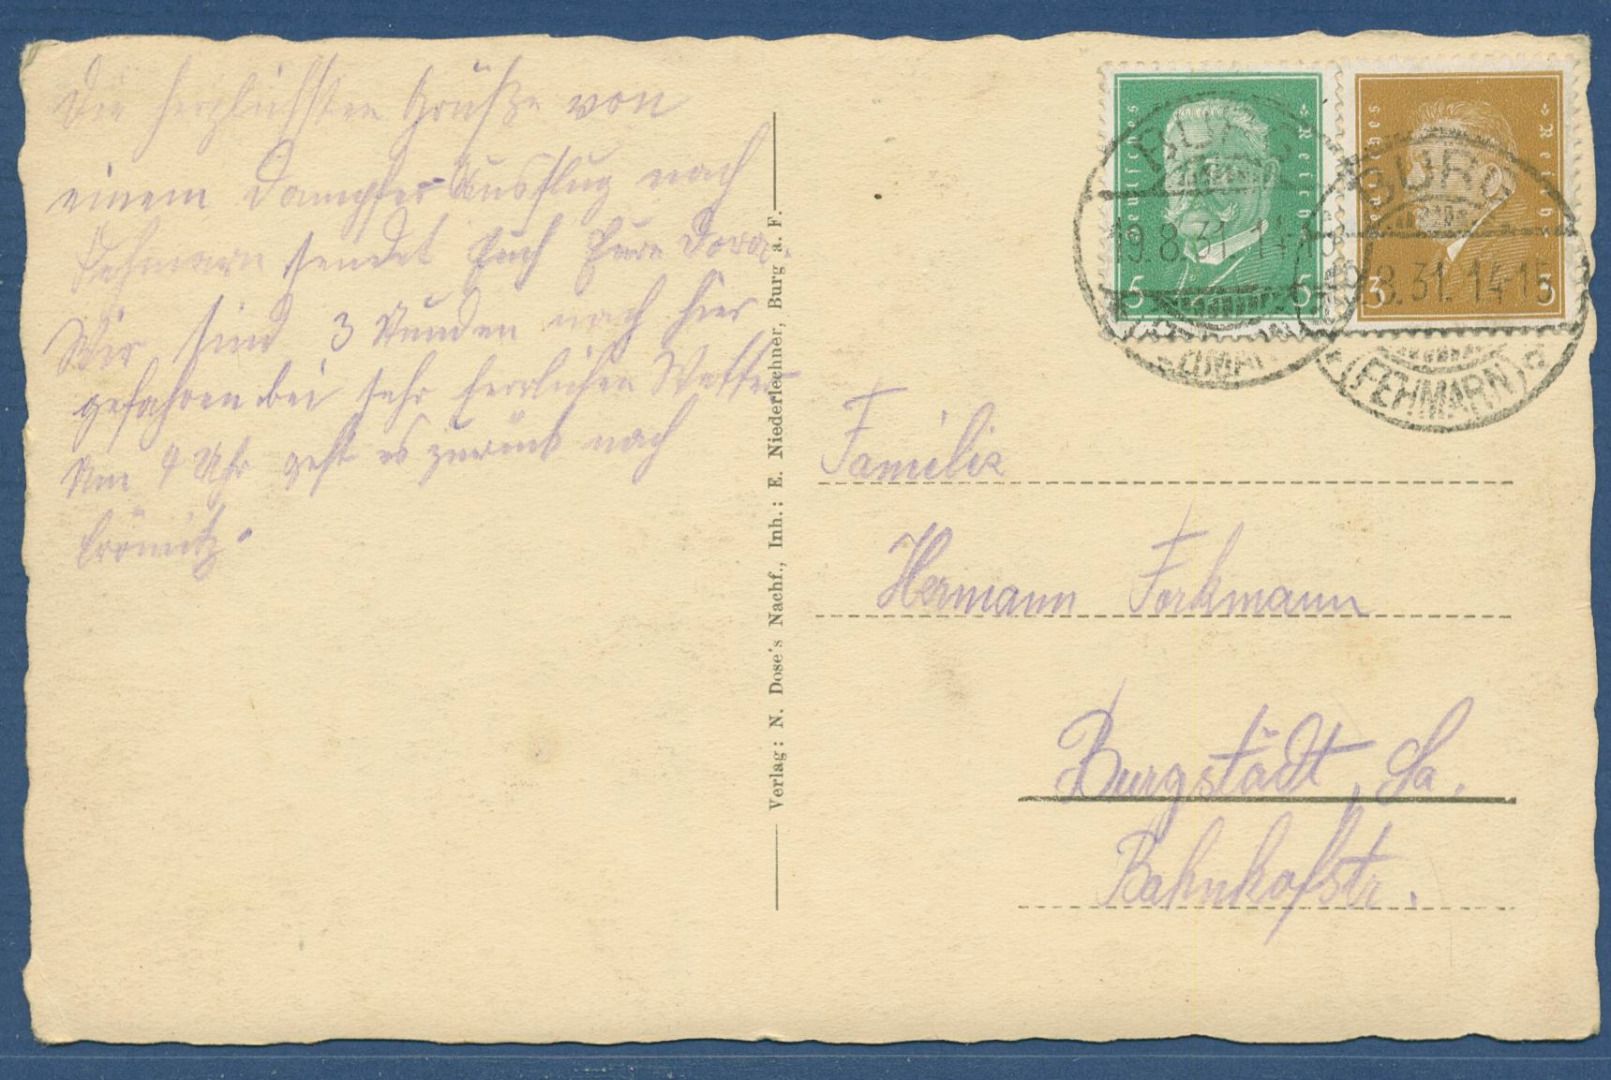 Die herzlichsten Grüße von
einem Dampfer-Ausflug nach
Fehmarn sendet Euch Eure Dora.
Wir sind 3 Stunden nach hier
gefahren bei sehr herrlichen Wetter
Um 4 Uhr geht es zurück nach
Grömitz.
Verlag: N. Dose's Nachf., Inh.: E. Niederlechner, Burg a. F.
Deutsches Reich
5 5
Deutsches Reich
3 3
BURG
19.8.31.14-15
(FEHMARN)
BURG
8.31.14-15
(FEHMARN) a
Familie
Hermann Forkmann
Burgstädt, Sa.
Bahnhofstr.